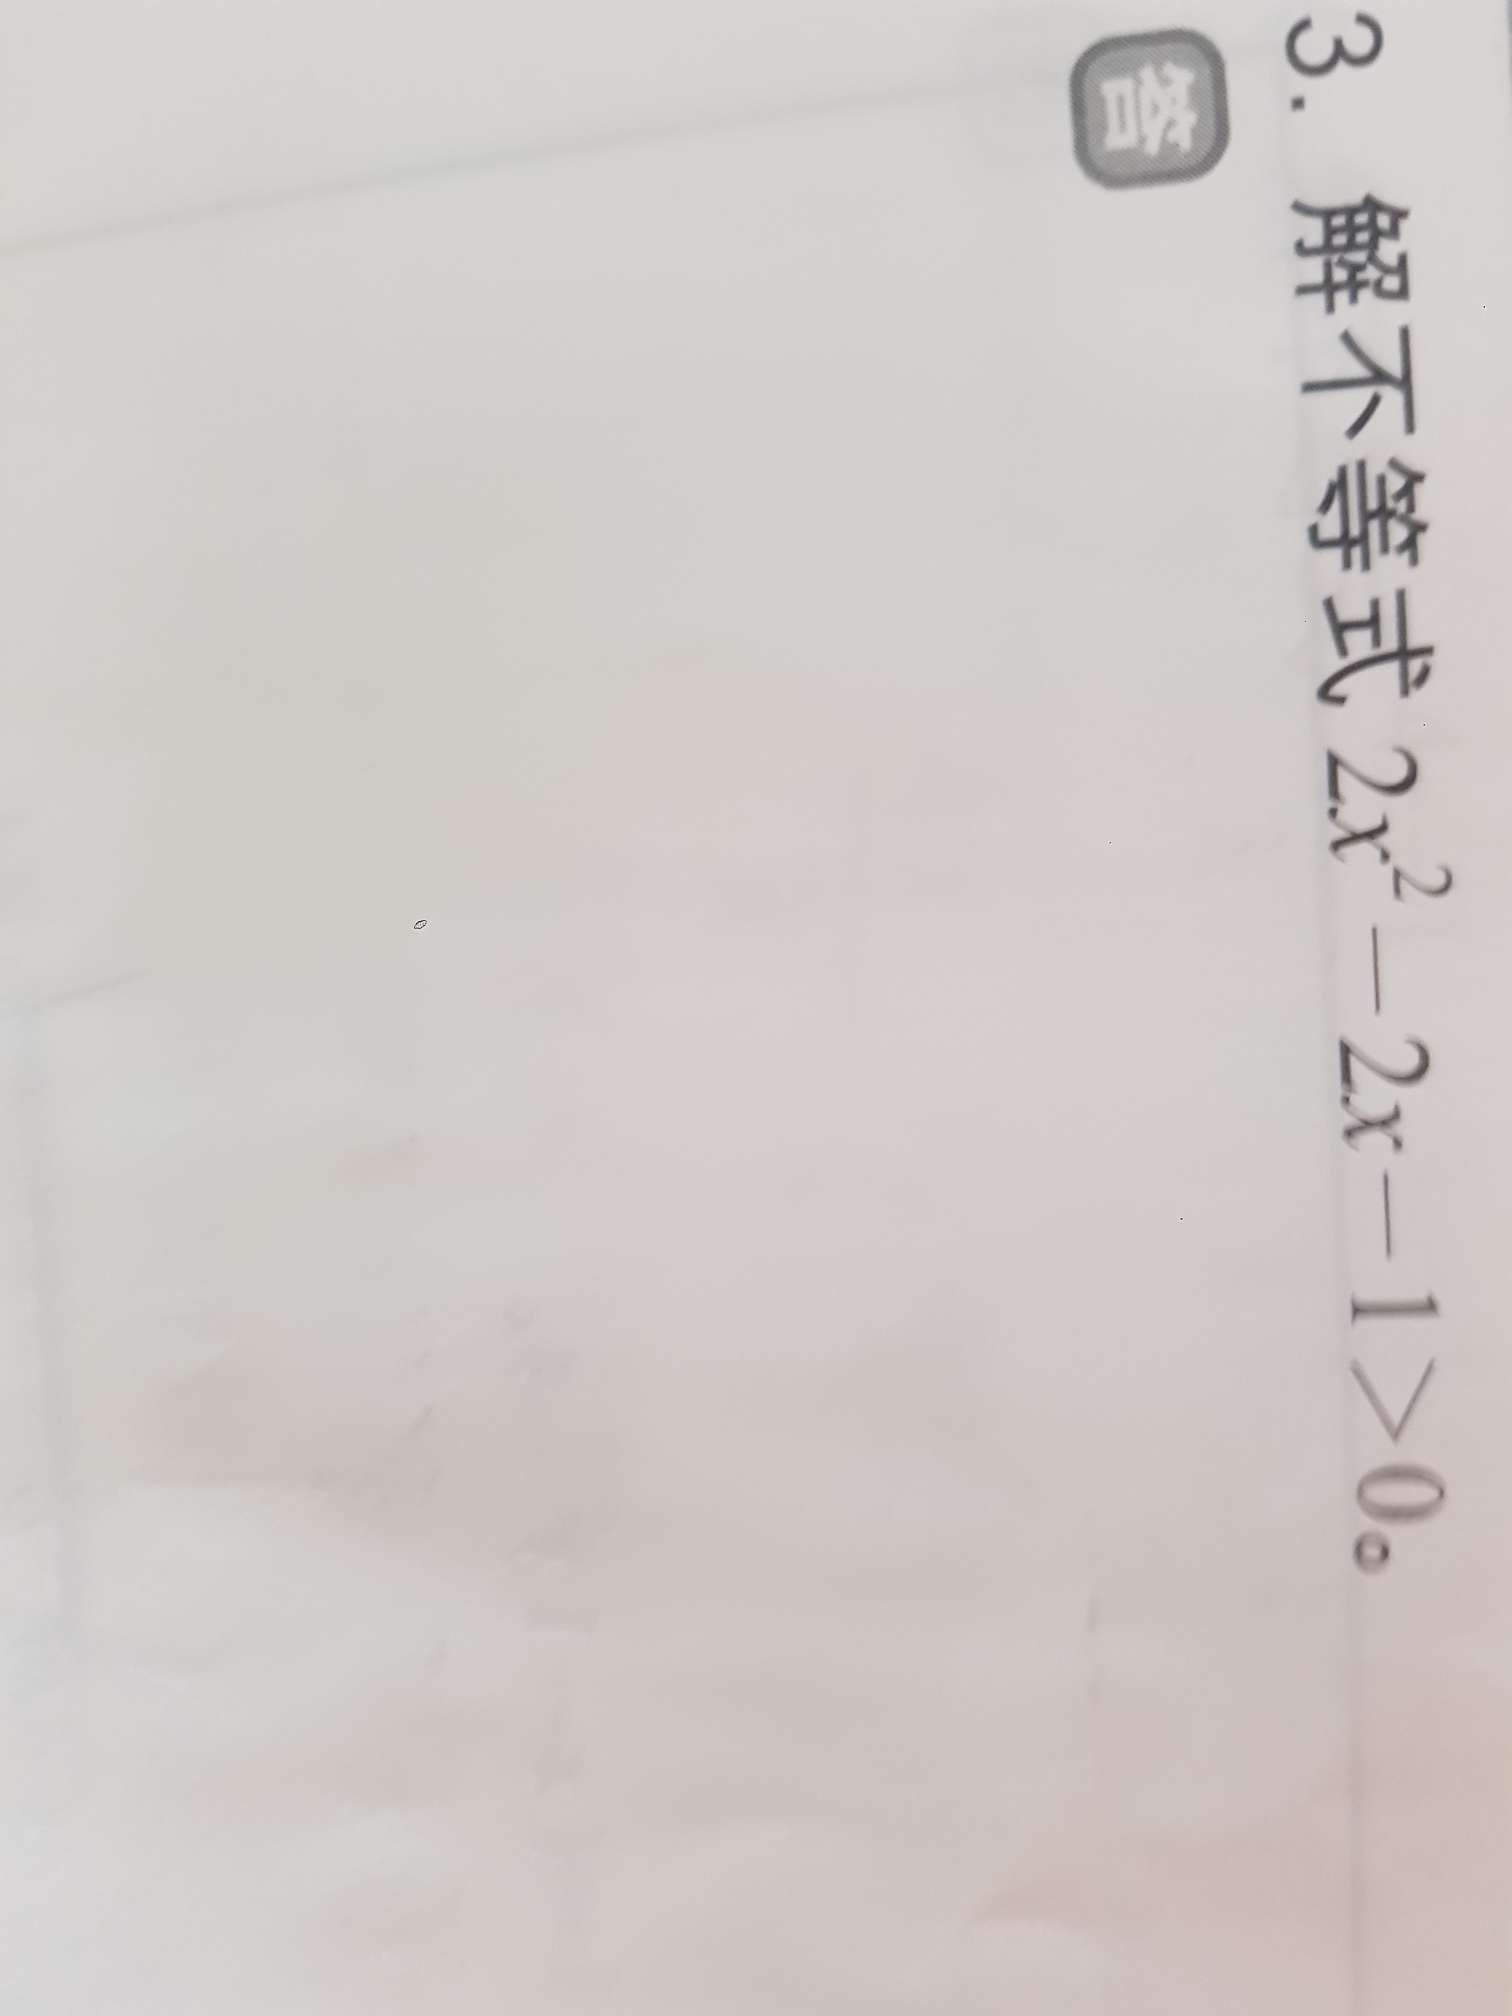 3. 解不等式 2x² - 2x - 1 > 0。
答